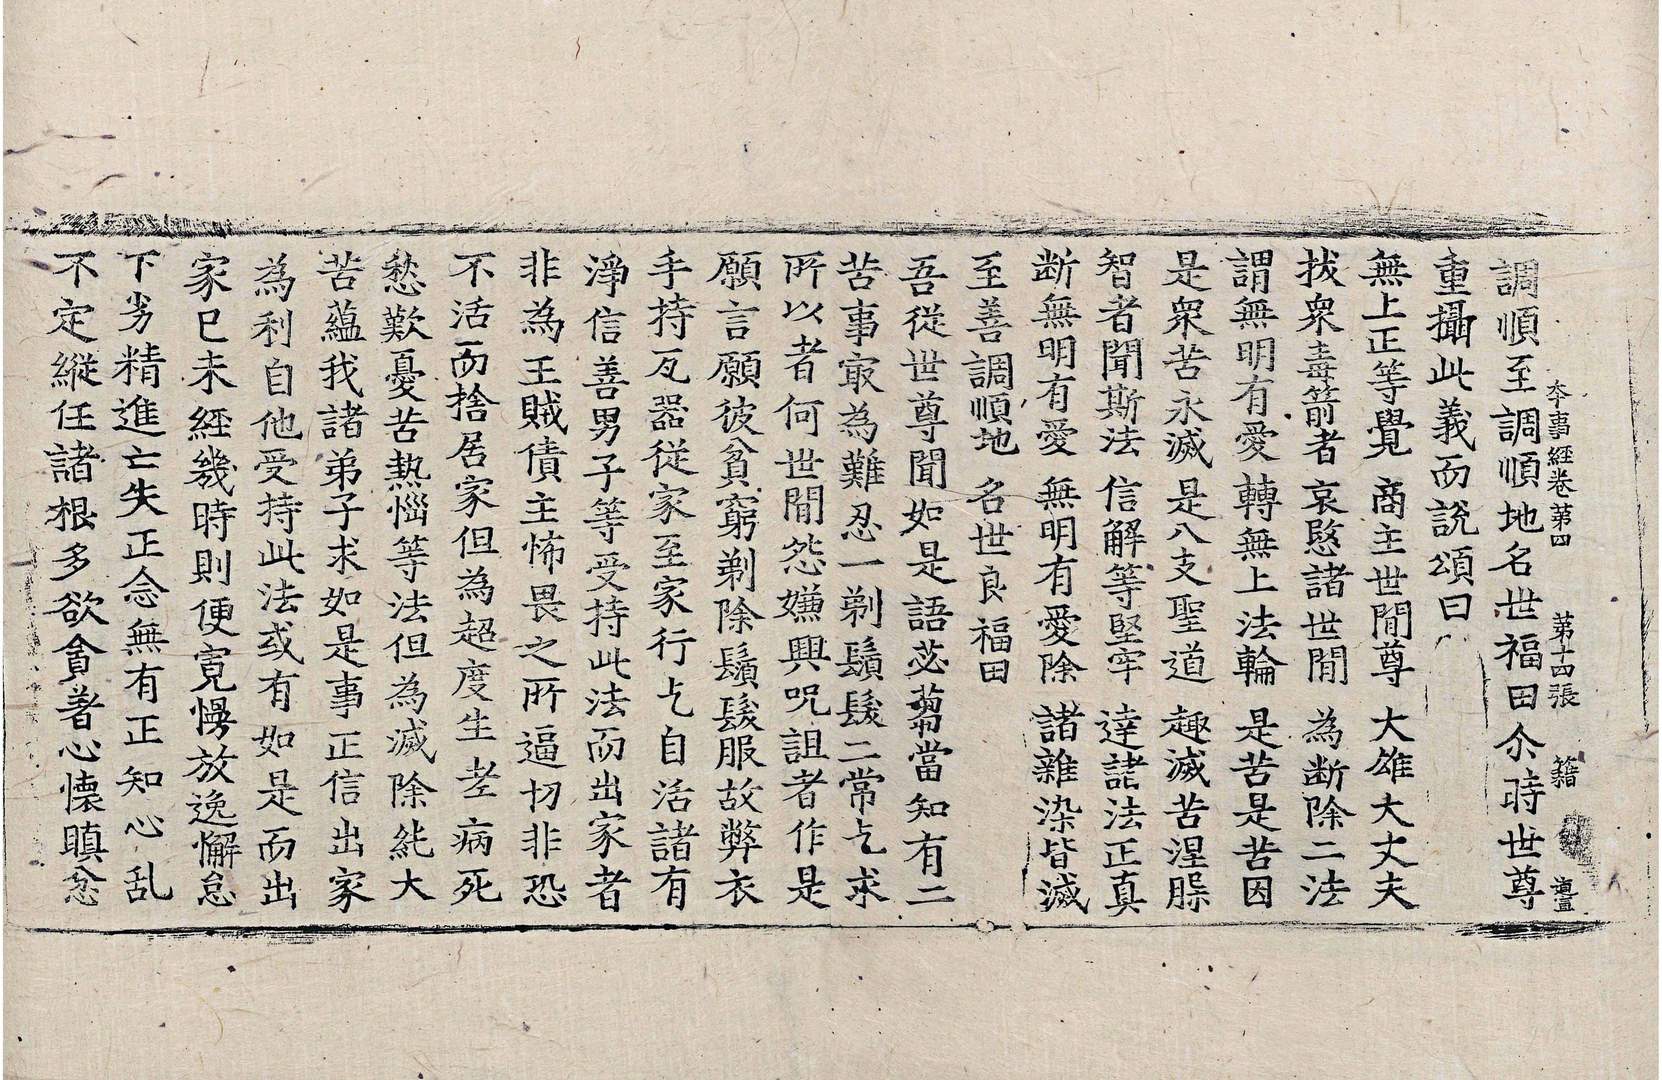 本事經卷第四 第十四張 籍 壇
調順至調順地名世福田尒時世尊
重攝此義而說頌曰
無上正等覺 商主世閒尊 大雄大丈夫
拔衆毒箭者 哀愍諸世閒 為断除二法
謂無明有愛 轉無上法輪 是苦是苦因
是衆苦永滅 是八支聖道 趣滅苦涅槃
智者聞斯法 信解等堅牢 達諸法正真
断無明有愛 無明有愛除 諸雜染皆滅
至善調順地 名世良福田
吾從世尊聞如是語苾蒭當知有二
苦事㝡為難忍一剃鬚髮二常乞求
所以者何世閒怨嫌興呪詛者作是
願言願彼貧窮剃除鬚髮服故弊衣
手持瓦器從家至家行乞自活諸有
淨信善男子等受持此法而出家者
非為王賊債主怖畏之所逼切非恐
不活而捨居家但為超度生老病死
愁歎憂苦熱惱等法但為滅除純大
苦蘊我諸弟子求如是事正信出家
為利自他受持此法或有如是而出
家已未經幾時則便寬慢放逸懈怠
下劣精進亡失正念無有正知心乱
不定縱任諸根多欲貪著心懷瞋忿